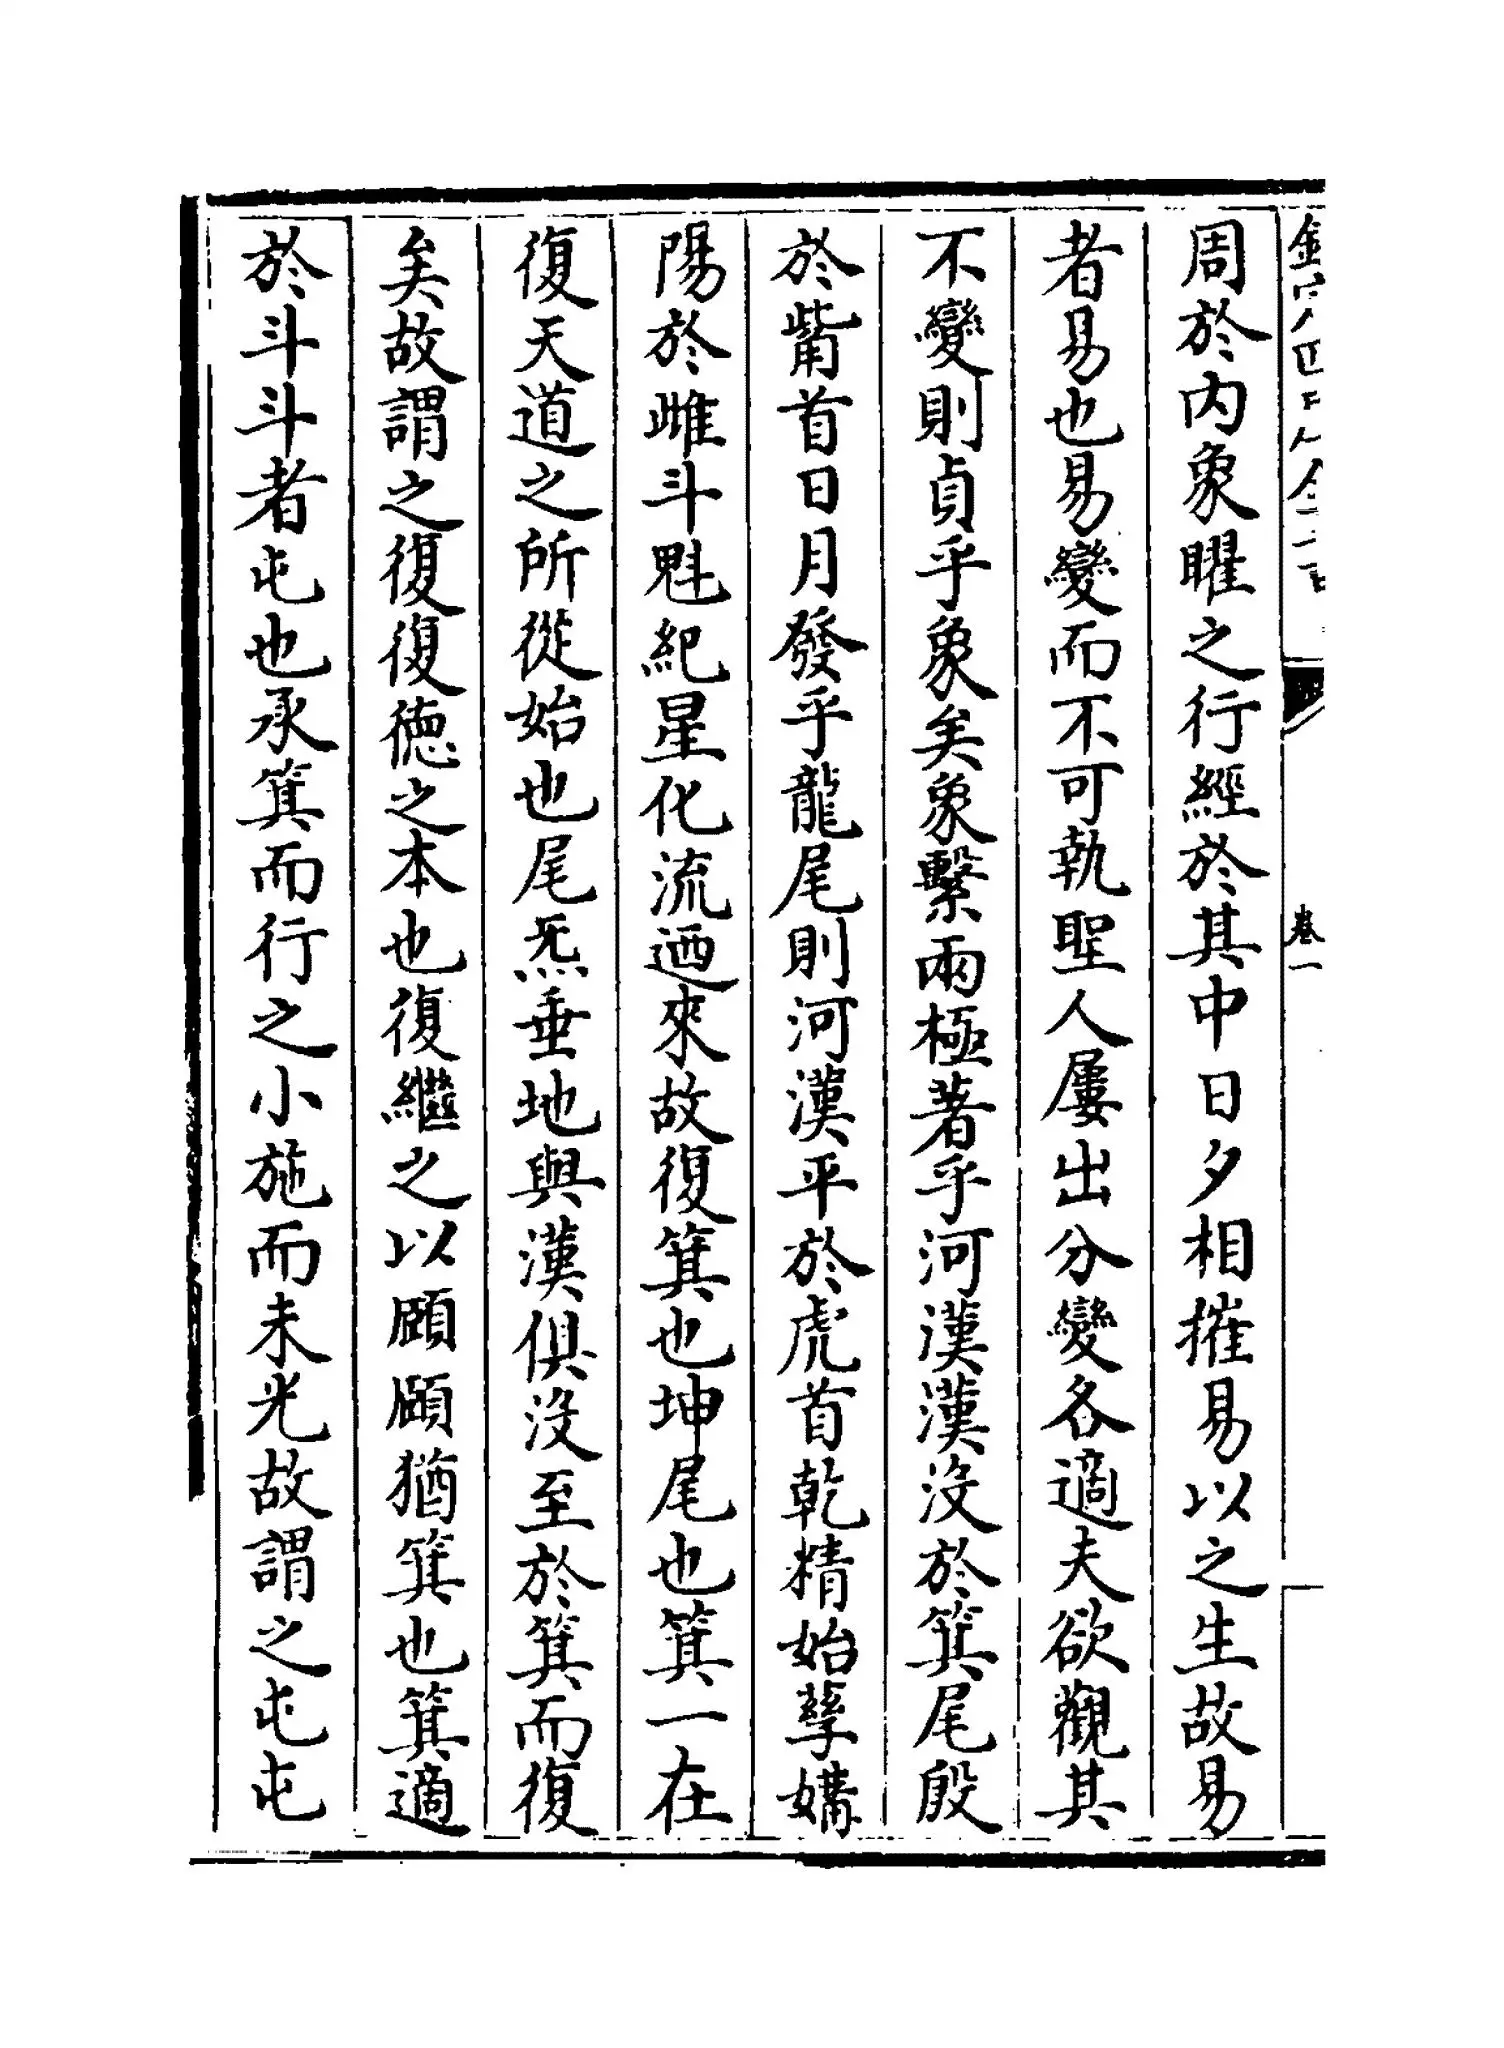 周於内象曜之行經於其中日夕相摧易以之生故易
者易也易變而不可執聖人屢出分變各適夫欲觀其
不變則貞乎象矣象繫兩極著乎河漢漢没於箕尾殷
於觜首日月發乎龍尾則河漢平於虎首乾精始孳媾
陽於雌斗魁紀星化流迺來故復箕也坤尾也箕一在
復天道之所從始也尾炁垂地與漢俱没至於箕而復
矣故謂之復復德之本也復繼之以頤頤猶箕也箕適
於斗斗者屯也承箕而行之小施而未光故謂之屯屯
卷一